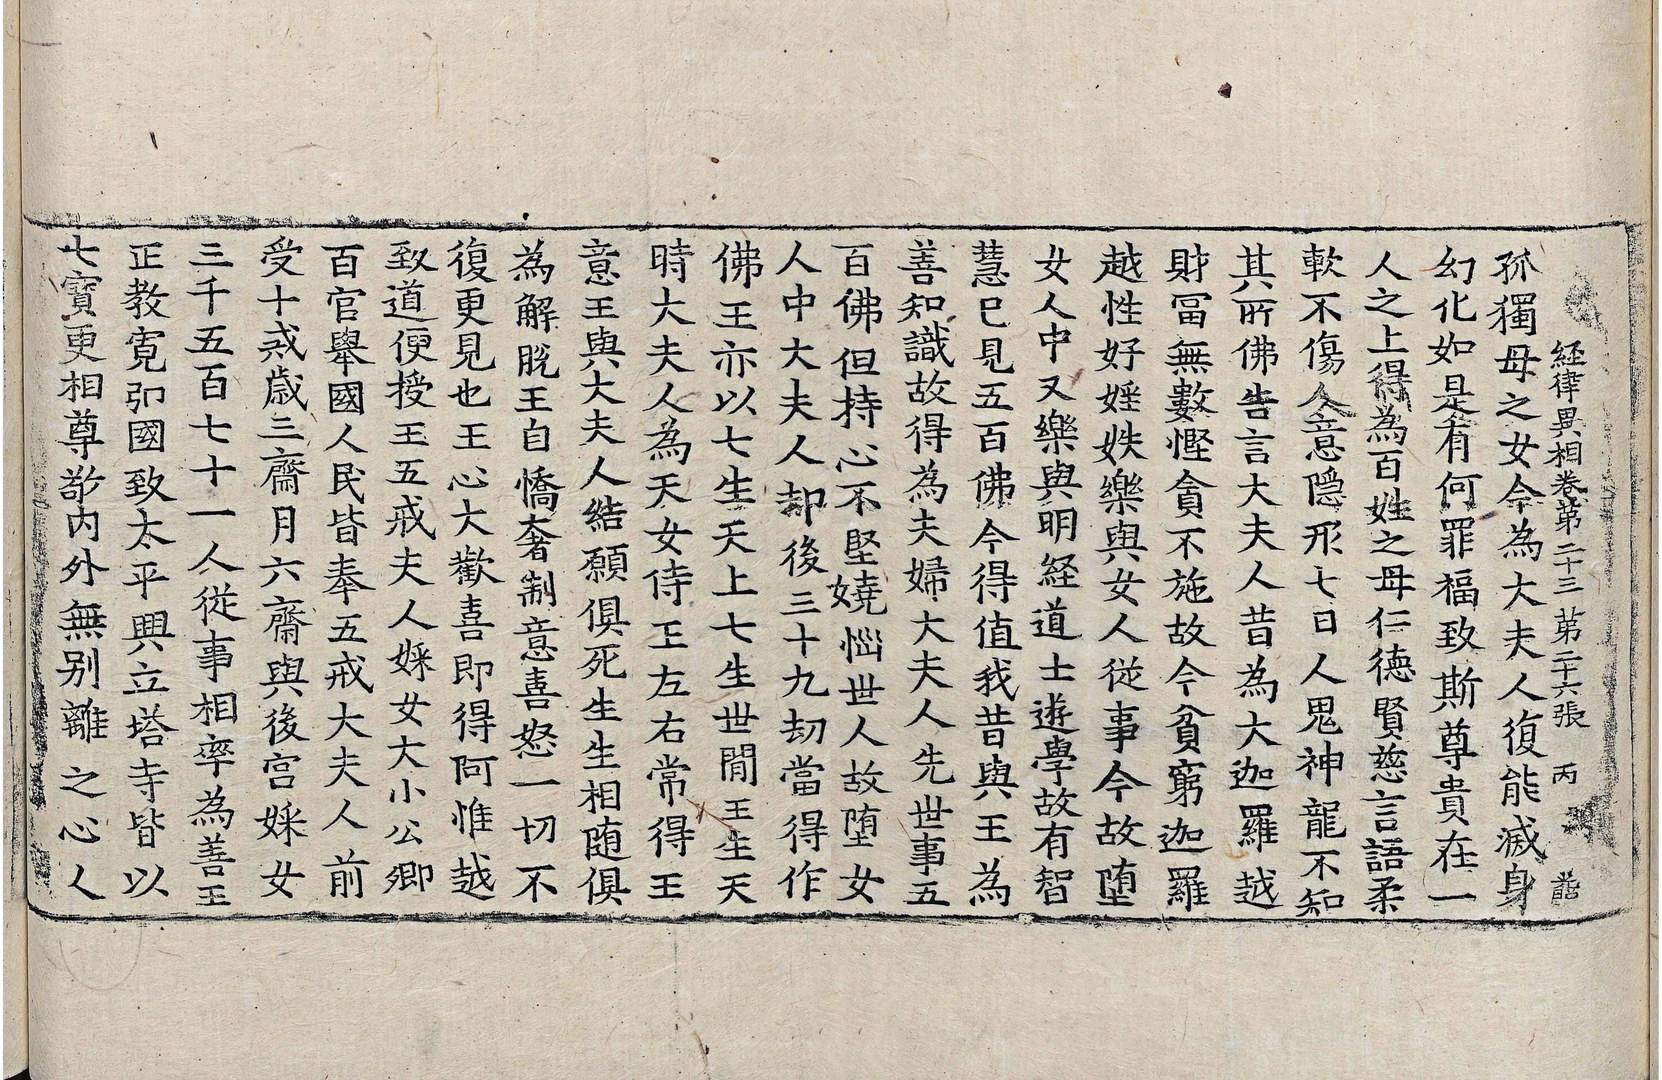 経律異相卷第二十三 第二十六張 丙
孤獨母之女今為大夫人復能滅身
幻化如是有何罪福致斯尊貴在一
人之上得為百姓之母仁德賢慈言語柔
軟不傷人意隱形七日人鬼神龍不知
其所佛告言大夫人昔為大迦羅越
財富無數慳貪不施故今貧窮迦羅
越性好婬妷樂與女人從事今故墮
女人中又樂與明経道士遊學故有智
慧已見五百佛今得值我昔與王為
善知識故得為夫婦大夫人先世事五
百佛但持心不堅嬈惱世人故墮女
人中大夫人却後三十九劫當得作
佛王亦以七生天上七生世間王生天
時大夫人為天女侍王左右常得王
意王與大夫人結願俱死生生相隨俱
為解脫王自憍奢制意喜怒一切不
復更見也王心大歡喜即得阿惟越
致道便授王五戒夫人婇女大小公卿
百官舉國人民皆奉五戒大夫人前
受十戒歳三齋月六齋與後宮婇女
三千五百七十一人從事相率為善王
正教寬卹國致太平興立塔寺皆以
七寶更相尊敬內外無別離之心人